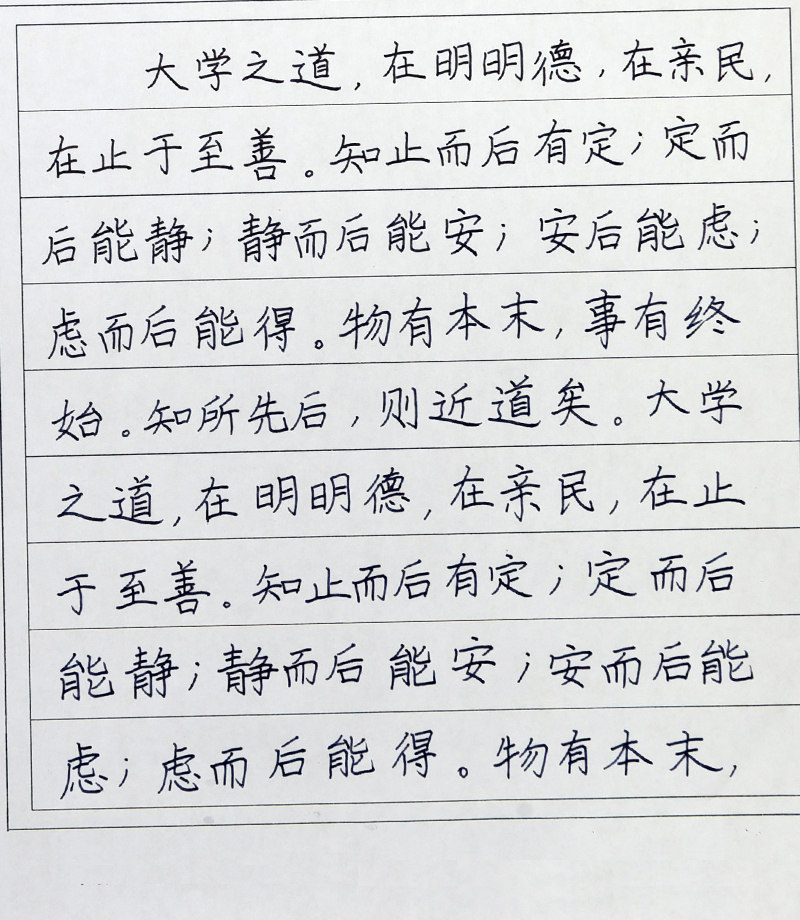 大学之道,在明明德,在亲民,
在止于至善。知止而后有定;定而
后能静;静而后能安;安后能虑;
虑而后能得。物有本末,事有终
始。知所先后,则近道矣。大学
之道,在明明德,在亲民,在止
于至善。知止而后有定;定而后
能静;静而后能安;安而后能
虑;虑而后能得。物有本末,